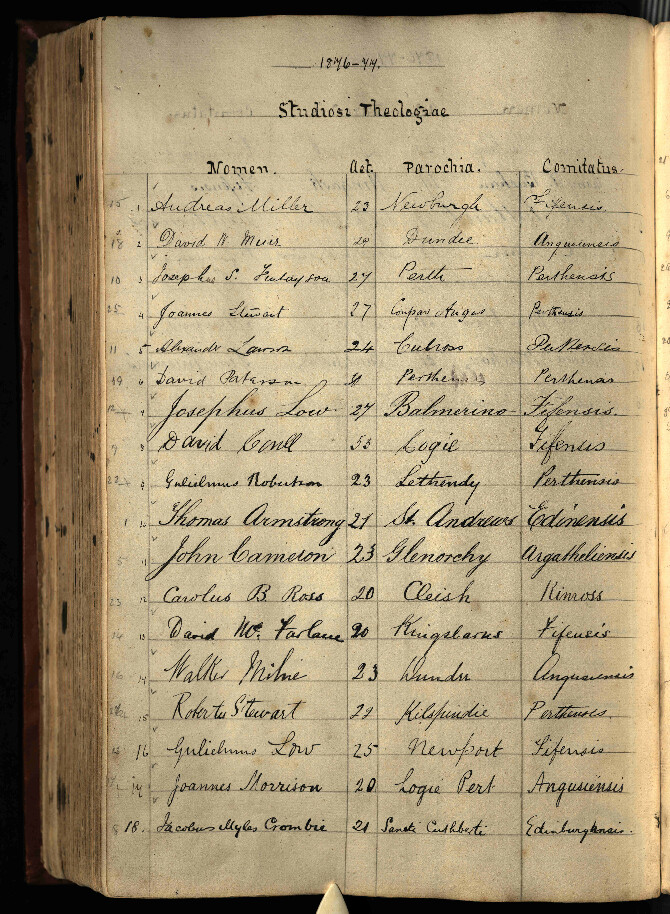 1876-77.
Studiosi Theologiae
Nomen. Aet. Parochia. Comitatus.
15 1 Andreas Miller 23 Newburgh Fifensis
18 2 David W Muir Dundee Angusiensis
10 3 Josephus S. Finlayson 27 Perth Perthensis
25 4 Joannes Stewart 27 Coupar Angus Perthensis
11 5 Alexandr Lawson 24 Culross Perthensis
19 6 David Paterson Perthensis Perthensis
7 Josephus Low 27 Balmerino Fifensis.
9 8 David Cowll 53 Logie Fifensis
22 9 Gulielmus Robertson 23 Lethendy Perthensis
1 10 Thomas Armstrong 21 St. Andrews Edinensis
5 11 John Cameron 23 Glenorchy Argatheliensis
23 12 Carolus B. Ross 20 Cleish Kinross
14 13 David Mc. Farlane 20 Kingsbarns Fifensis
16 14 Walker Milne 23 Dundee Angusiensis
15 Robertus Stewart 22 Kilspindie Perthensis.
16 Gulielmus Low 25 Newport Fifensis
17 Joannes Morrison 20 Logie Pert Angusiensis
8 18. Jacobus Myles Crombie 21 Sancti Cuthberti Edinburgensis.